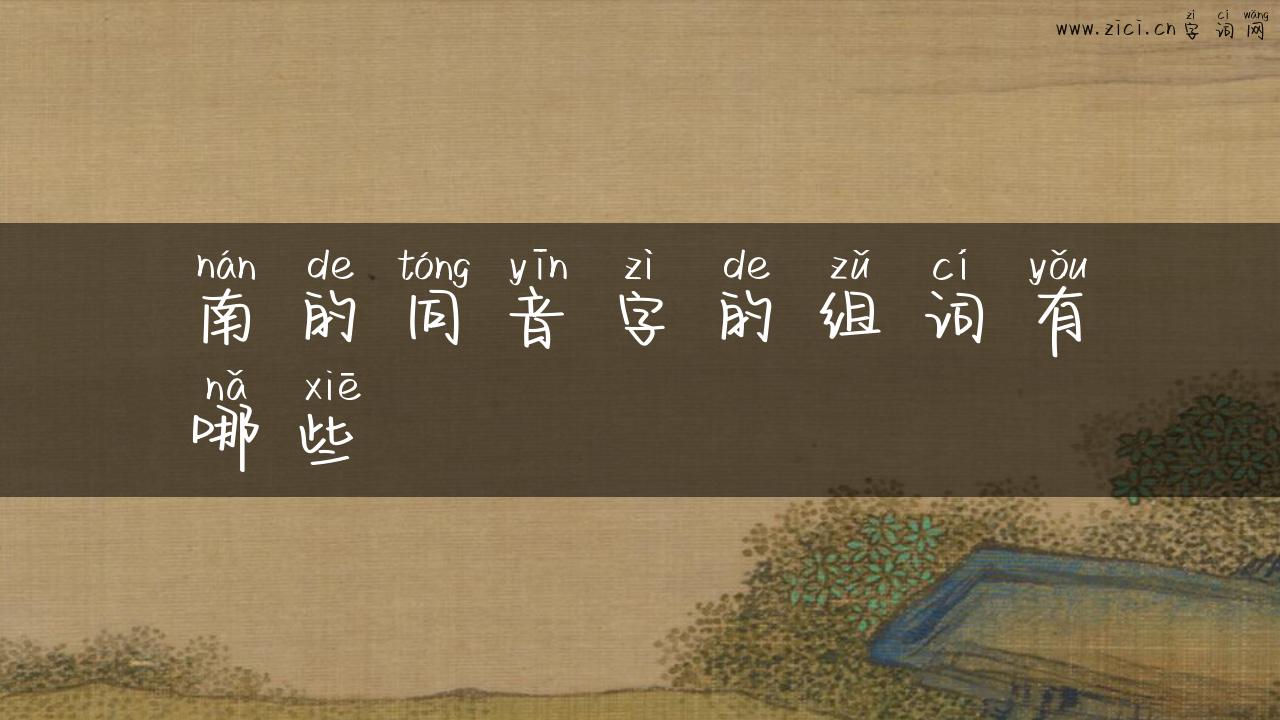 zì cí wǎng
www.zici.cn 字词网
nán de tóng yīn zì de zǔ cí yǒu
南的同音字的组词有
nǎ xiē
哪些